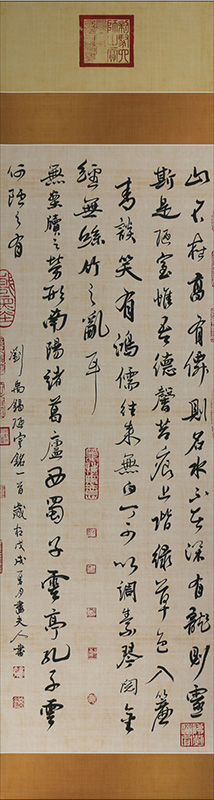 山不在高有僊則名水不在深有龍則靈
斯是陋室惟吾德馨苔痕上階綠草色入簾
青談笑有鴻儒往來無白丁可以調素琴閱金
經無絲竹之亂耳
無案牘之勞形南陽諸葛廬西蜀子雲亭孔子雲
何陋之有
劉禹錫陋室銘一首歲在戊戌夏月夫人書